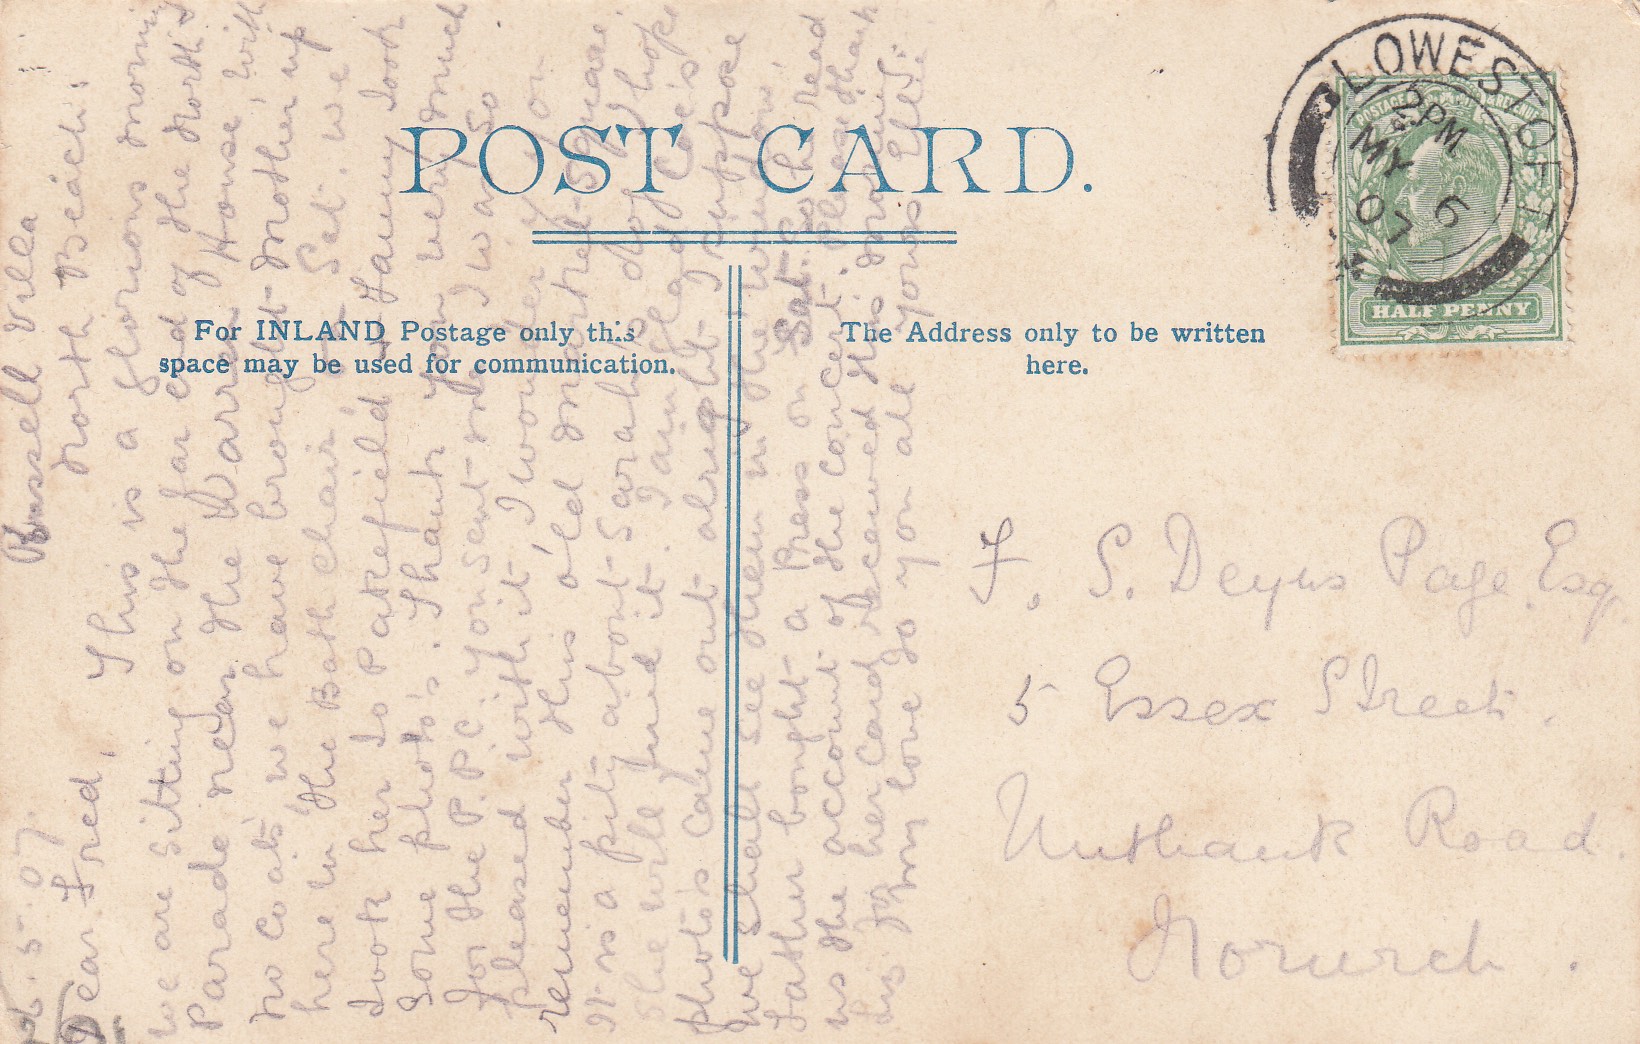 POST CARD.
For INLAND Postage only this
space may be used for communication.
The Address only to be written
here.
LOWESTOFT
2 PM
MY 6
07
POSTAGE & REVENUE
HALF PENNY
F. S. Deyns Page Esq.
5 Essex Street.
Unthank Road.
Norwich.
Russell Villa
North Beach.
6.5.07.
Dear Fred,
This is a glorious morning
we are sitting on the far end of the North
Parade near the Warren House with
no coats we have brought Mother up
here in the Bath chair Sat. we
took her to Pakefield & Fanny took
some photo's. Thank you very much
for the P.P.C. you sent me I was so
pleased with it I wonder if you
remember this old Market-Square
It is a pity about Sarah's I hope
she will find it. I am glad Coe's
photo's came out alright I suppose
we shall see them in the window
Father bought a Press on Sat. so he read
us the account of the concert. Please thank
for her card received this morning
my love to you all yours